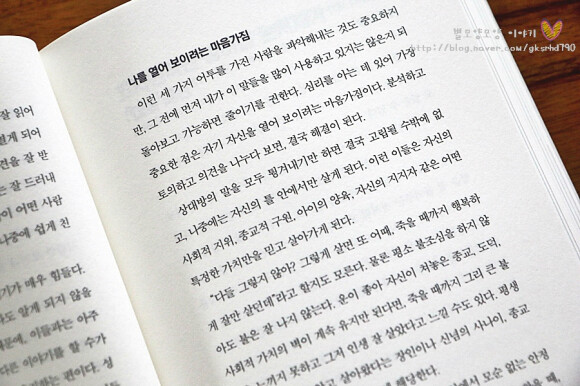 별모양모양 이야기
http://blog.naver.com/gksrhd790
잘 읽어
렇게 되어
견을 잘 반
잘 드러내
이 어떤 사람
나중에 쉽게 친
기가 매우 힘들다.
도 알게 되지 않을
때문에, 이들과는 아주
다른 이야기를 할 수가
하는 편이다. 성
나를 열어 보이려는 마음가짐
이런 세 가지 어투를 가진 사람을 파악해내는 것도 중요하지
만, 그 전에 먼저 내가 이 말들을 많이 사용하고 있지는 않은지 되
돌아보고 가능하면 줄이기를 권한다. 심리를 아는 데 있어 가장
중요한 점은 자기 자신을 열어 보이려는 마음가짐이다. 분석하고
토의하고 의견을 나누다 보면, 결국 해결이 된다.
상대방의 말을 모두 튕겨내기만 하면 결국 고립될 수밖에 없
고, 나중에는 자신의 틀 안에서만 살게 된다. 이런 이들은 자신의
사회적 지위, 종교적 구원, 아이의 양육, 자신의 지지자 같은 어떤
특정한 가치만을 믿고 살아가게 된다.
"다들 그렇지 않아? 그렇게 살면 또 어때, 죽을 때까지 행복하
게 잘만 살던데"라고 할지도 모른다. 물론 평소 불조심을 하지 않
아도 불은 잘 나지 않는다. 운이 좋아 자신이 쳐놓은 종교, 도덕,
사회적 가치의 벽이 계속 유지만 된다면, 죽을 때까지 그리 큰 불
느끼지 못하고 그저 인생 잘 살았다고 느낄 수도 있다. 평생
고 살아왔다는 장인이나 신념의 사나이, 종교
해당한다.
에서 모순 없는 안정
때,